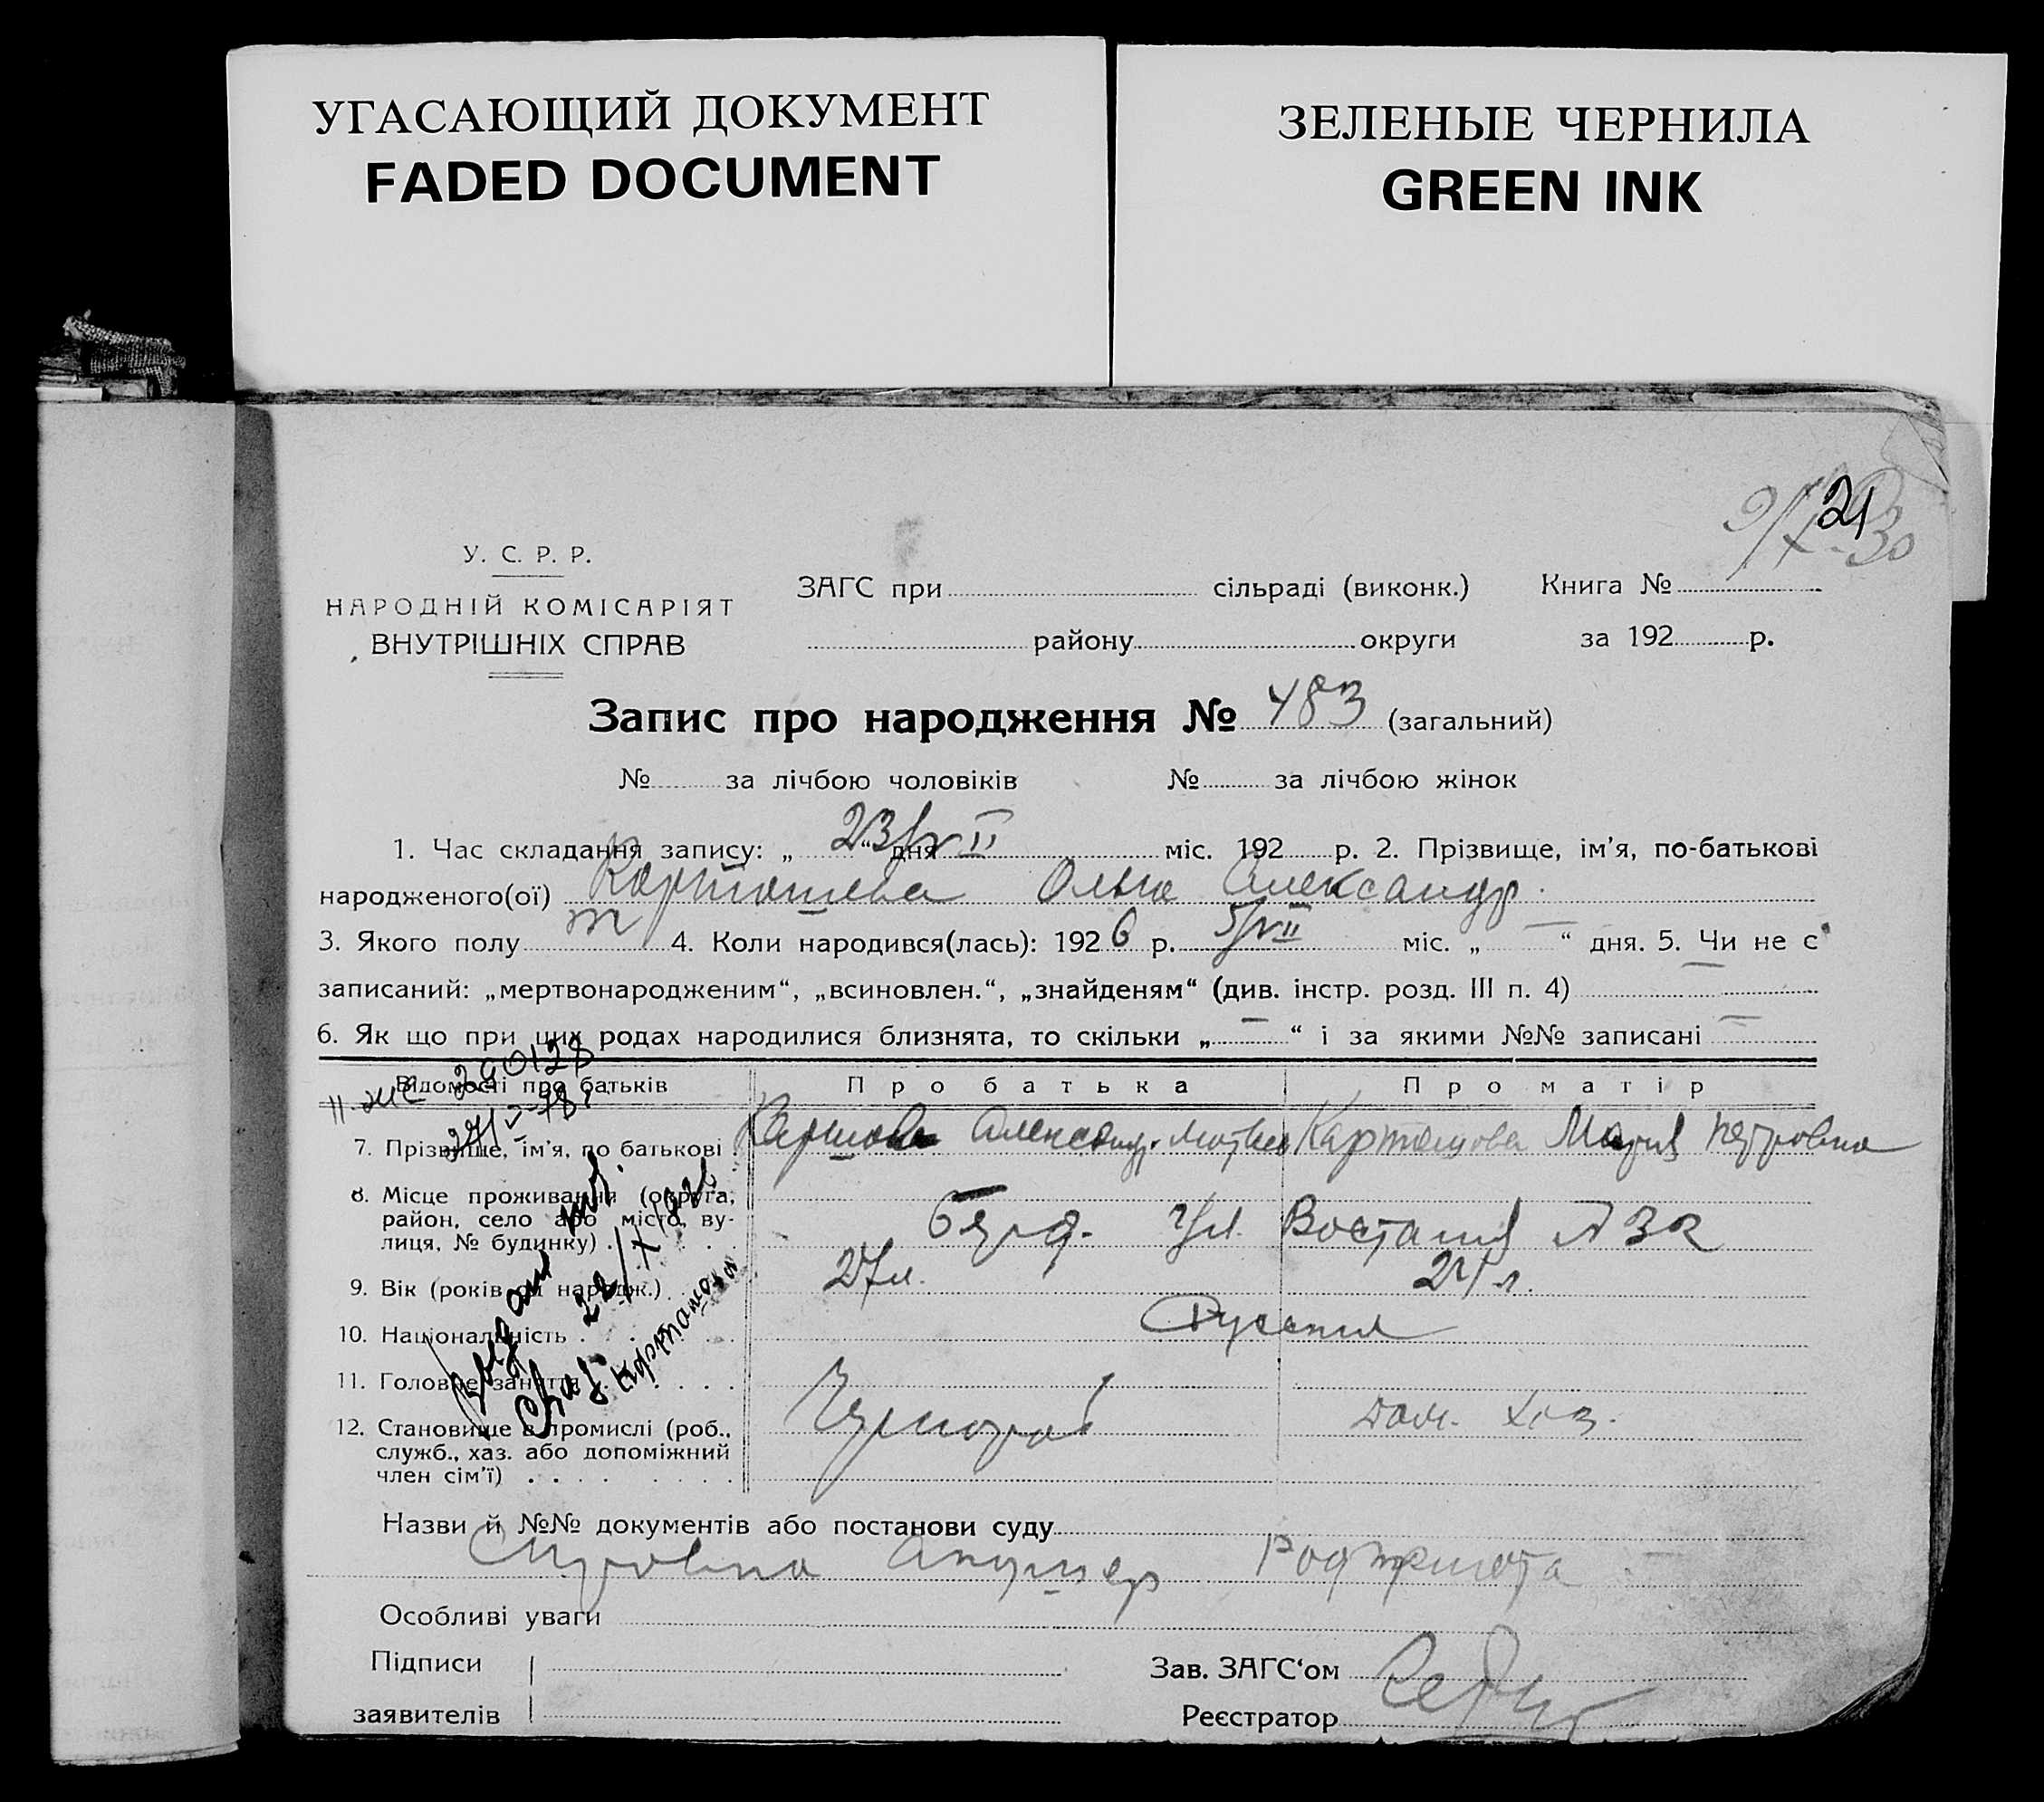 УГАСАЮЩИЙ ДОКУМЕНТ
FADED DOCUMENT
ЗЕЛЕНЫЕ ЧЕРНИЛА
GREEN INK
21
У. С. Р. Р.
НАРОДНІЙ КОМІСАРІЯТ
ВНУТРІШНІХ СПРАВ
ЗАГС при сільраді (виконк.) Книга №
району округи за 192 р.
Запис про народження № 483 (загальний)
№ за лічбою чоловіків № за лічбою жінок
1. Час складання запису: „ 23/VII “ дня міс. 192 р. 2. Прізвище, ім’я, по-батькові
народженого(ої) Карташева Ольга Александр.
3. Якого полу ж 4. Коли народився(лась): 1926 р. 5/VII міс. „ — “ дня. 5. Чи не є
записаний: „мертвонародженим“, „всиновлен.“, „знайденям“ (див. інстр. розд. III п. 4) —
6. Як що при цих родах народилися близнята, то скільки „ — “ і за якими №№ записані —
Відомості про батьків Про батька Про матір
7. Прізвище, ім’я, по батькові Александр Карташова Мария Петровна
8. Місце проживання (округа,
район, село або місто, ву-
лиця, № будинку) . . . Ул. Востания
9. Вік (років од народж.) . . . 27 л. 24 л.
10. Національність . . . Русския
11. Головне заняття . . .
12. Становище в промислі (роб.,
служб., хаз. або допоміжний
член сім’ї) . . . дом. хоз.
Назви й №№ документів або постанови суду
акушер
Особливі уваги
Підписи
заявителів
Зав. ЗАГС‘ом
Реєстратор